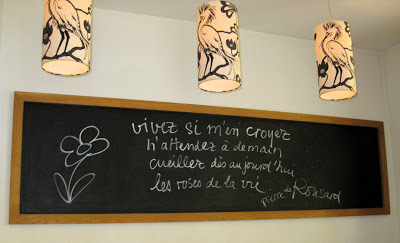 vivez si m'en croyez
n'attendez à demain
cueillez dès aujourd'hui
les roses de la vie
Pierre de Ronsard